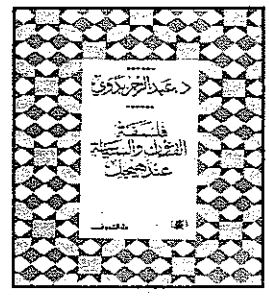 د. عبد الرحمن بدوي
فلسفة
القانون والسياسة
عند هيجل
دار الشروق